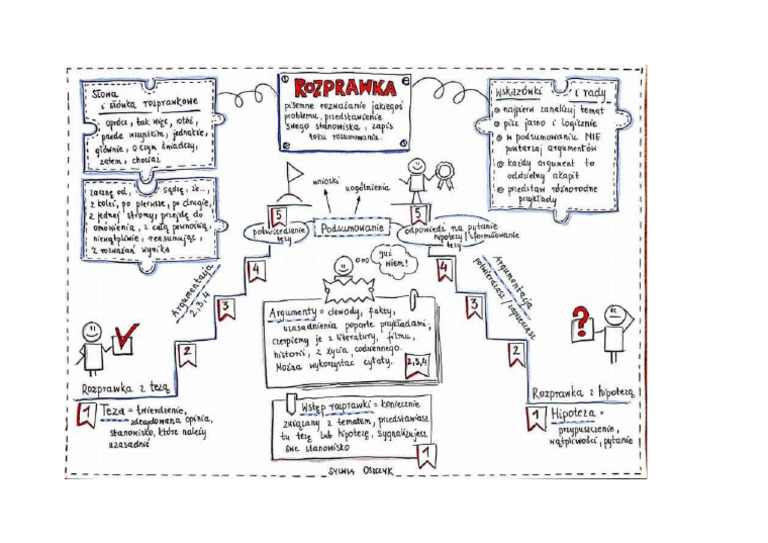 ROZPRAWKA
pisemne rozważanie jakiegoś
problemu, przedstawienie
swego stanowiska, zapis
toku rozumowania.
Słowa
i słówka rozprawkowe
oprócz, tak więc, otóż,
przede wszystkim, jednakże,
głównie, o czym świadczy,
zatem, chociaż
zacznę od, sądzę, że...,
z kolei, po pierwsze, po drugie,
z jednej strony, przejdę do
omówienia, z całą pewnością,
niewątpliwie, reasumując,
z rozważań wynika
Wskazówki i rady
najpierw zanalizuj temat
pisz jasno i logicznie
w podsumowaniu NIE
powtarzaj argumentów
każdy argument to
oddzielny akapit
przedstaw różnorodne
przykłady
wnioski
uogólnienia
5
potwierdzenie
tezy
Podsumowanie
5
odpowiedź na pytanie
hipotezy / sformułowanie
tezy
Już
wiem!
Argumentacja
2, 3, 4
4
3
2
Argumentacja
potwierdzasz / zaprzeczasz
4
3
2
Argumenty = dowody, fakty,
uzasadnienia poparte przykładami,
czerpiemy je z literatury, filmu,
historii, z życia codziennego.
Można wykorzystać cytaty.
2,3,4
Rozprawka z tezą
1
Teza = twierdzenie,
zdecydowana opinia,
stanowisko, które należy
uzasadnić
Wstęp rozprawki = koniecznie
związany z tematem, przedstawiasz
tu tezę lub hipotezę, sygnalizujesz
swe stanowisko
1
?
Rozprawka z hipotezą
1
Hipoteza =
przypuszczenie,
wątpliwości, pytanie
SYLWIA OSZCZYK